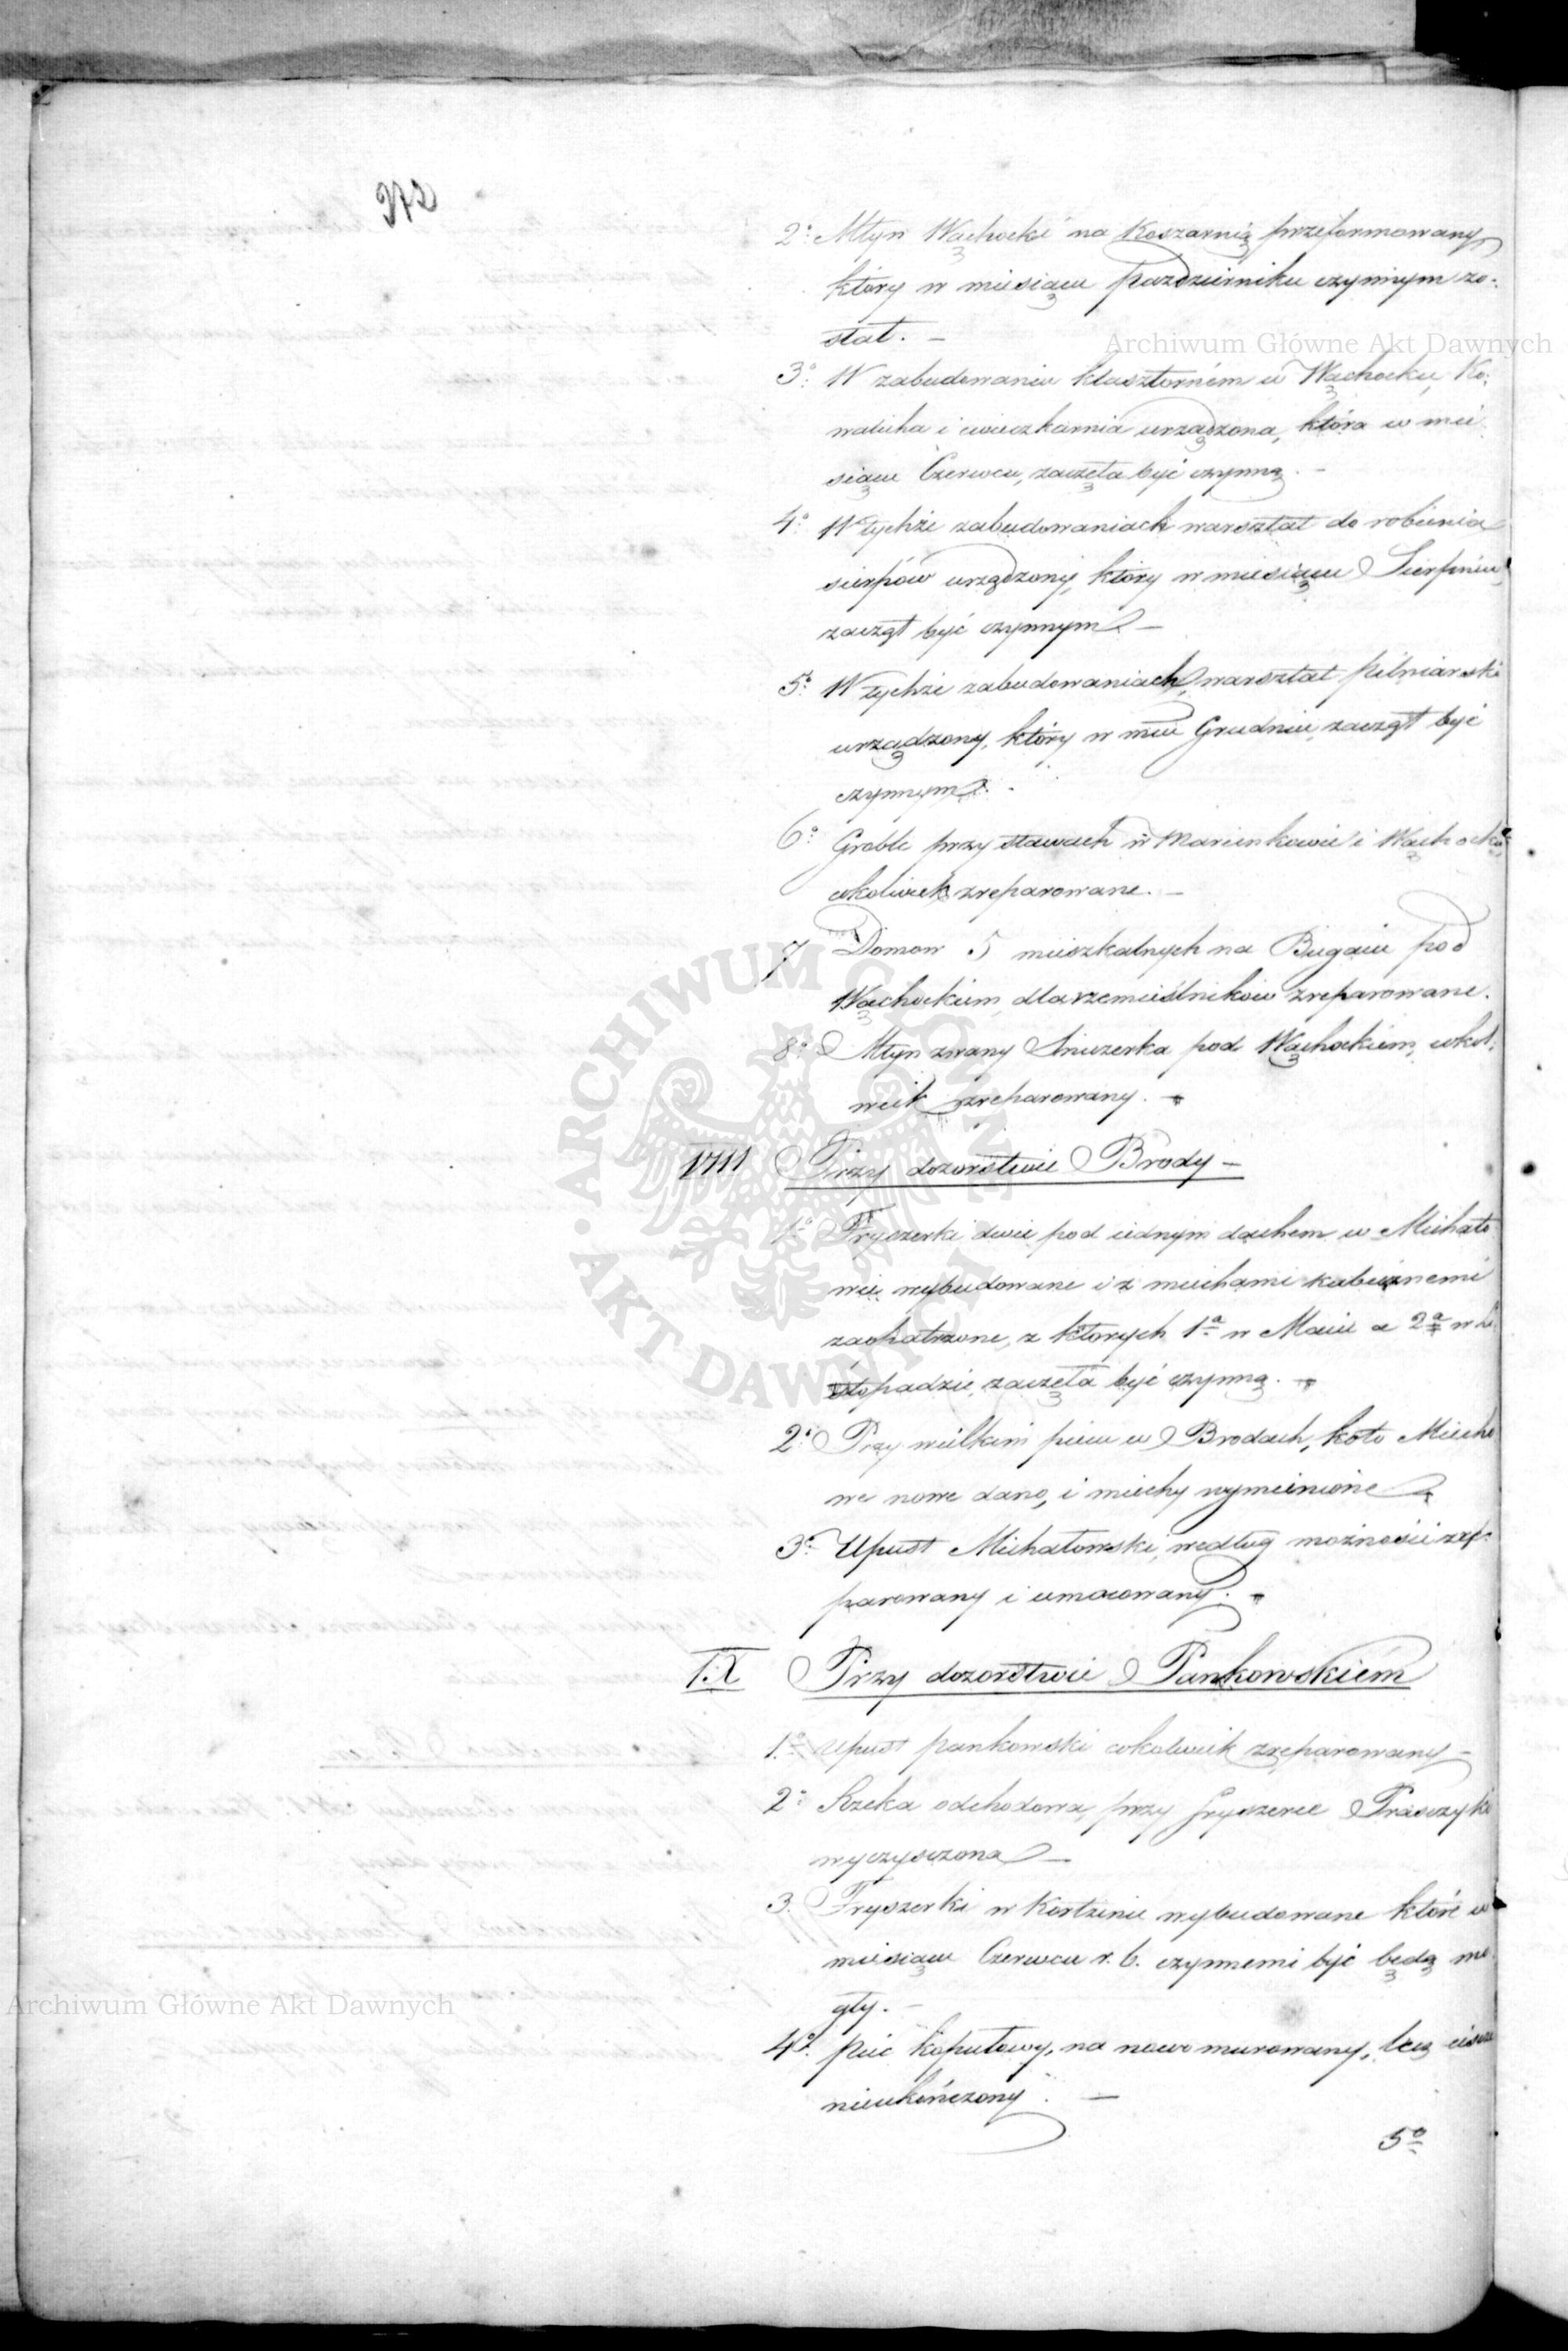 272
2º Młyn Wąchocki na Koszarnią przeformowany
który w miesiącu pazdzierniku czynnym zo-
stał. –
Archiwum Główne Akt Dawnych
3º W zabudowaniu klasztorném w Wąchocku, Ko-
walicha i cwieczkarnia urządzona, która w mie
siącu Czerwcu, zaczęła być czynną. –
4º W tychże zabudowaniach warsztat do robienia
sierpów urządzony, który w miesiącu Sierpniu
zaczął być czynnym –
5º W tychże zabudowaniach, warsztat pilniarski
urządzony, który w mcu Grudniu, zaczął być
czynnym. –
6º Groble przy stawach w Marcinkowie i Wąchocku
cokolwiek zreparowane. –
7 Domow 5 mieszkalnych na Bugaiu pod
Wąchockiem, dla rzemieślników zreparowane.
8º Młyn zwany pod Wąchockiem, cokol-
wiek zreparowany. –
ARCHIWUM GŁÓWNE AKT DAWNYCH
VIII Przy dozorstwie Brody –
1º Fryszerki dwie pod iednym dachem w Michało
wie wybudowane i z miechami kubicznemi
zaopatrzone, z których 1ª w Maiu a 2ª w Li
stopadzie, zaczęła być czynną. –
2º Przy wielkim piecu w Brodach, koło Miecho
we nowe dano, i miechy wymienione
3º Upust Michałowski, według możności zre-
parowany i umocowany. –
IX Przy dozorstwie Pankowskiém
1º Upust pankowski cokolwiek zreparowany –
2º Rzeka odchodowa, przy fryszerce Praszczyki
wyczysczona –
3. Fryszerki w wybudowane które w
miesiącu Czerwcu r. b. czynnemi być będą mo-
gły. –
Archiwum Główne Akt Dawnych
4º piec kopułowy, na nowo murowany, lecz iescze
nieukończony. –
5º